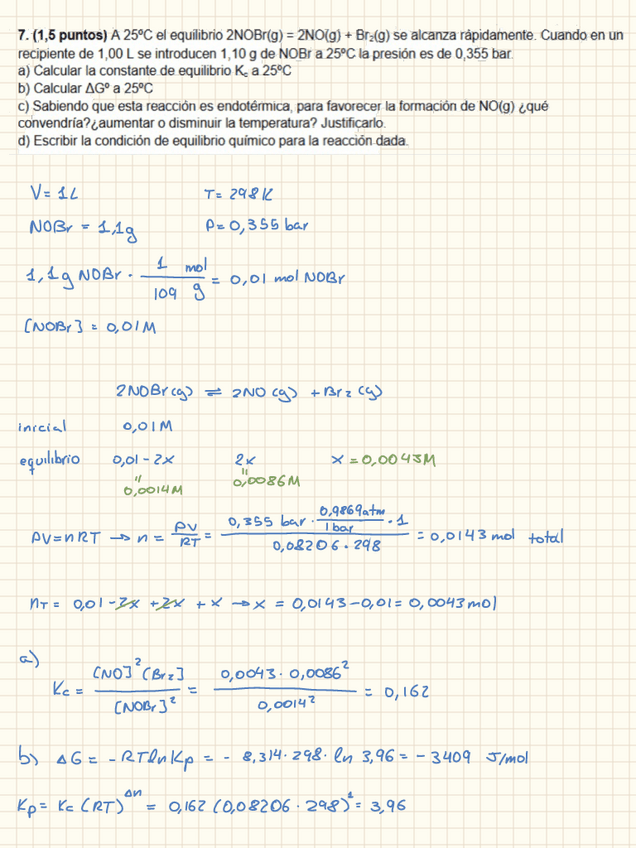 7. (1,5 puntos) A 25ºC el equilibrio 2NOBr(g) = 2NO(g) + Br₂(g) se alcanza rápidamente. Cuando en un
recipiente de 1,00 L se introducen 1,10 g de NOBr a 25ºC la presión es de 0,355 bar.
a) Calcular la constante de equilibrio Kc a 25ºC
b) Calcular ΔGº a 25ºC
c) Sabiendo que esta reacción es endotérmica, para favorecer la formación de NO(g) ¿qué
convendría?¿aumentar o disminuir la temperatura? Justificarlo.
d) Escribir la condición de equilibrio químico para la reacción dada.
V = 1L T = 298K
NOBr = 1,1g P = 0,355 bar
1,1g NOBr · 1 mol / 109 g = 0,01 mol NOBr
[NOBr] = 0,01M
2NOBr(g) ⇌ 2NO(g) + Br₂(g)
inicial 0,01M
equilibrio 0,01-2x 2x x = 0,0043M
" "
0,0014M 0,0086M
PV=nRT → n = PV/RT = 0,355 bar · 0,9869atm/1bar · 1 / 0,08206 · 298 = 0,0143 mol total
nT = 0,01 - 2x + 2x + x → x = 0,0143 - 0,01 = 0,0043mol
a)
Kc = [NO]² [Br₂] / [NOBr]² = 0,0043 · 0,0086² / 0,0014² = 0,162
b) ΔG = -RTlnKp = - 8,314 · 298 · ln 3,96 = - 3409 J/mol
Kp = Kc (RT)^Δn = 0,162 (0,08206 · 298)¹ = 3,96